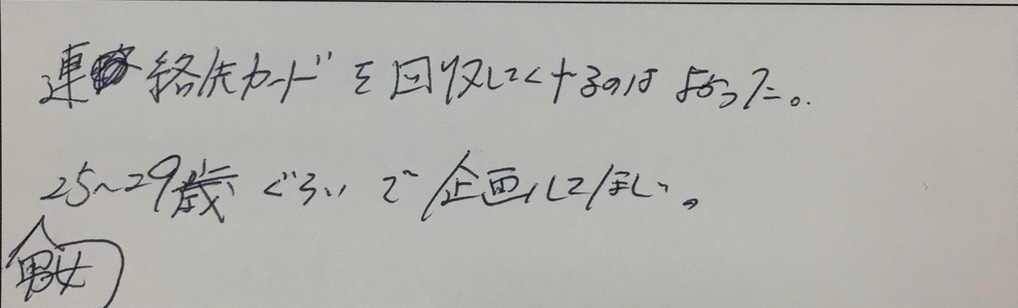 連絡先カードを回収してくれるのはよかった。
25~29歳ぐらいで企画してほしい。
男女